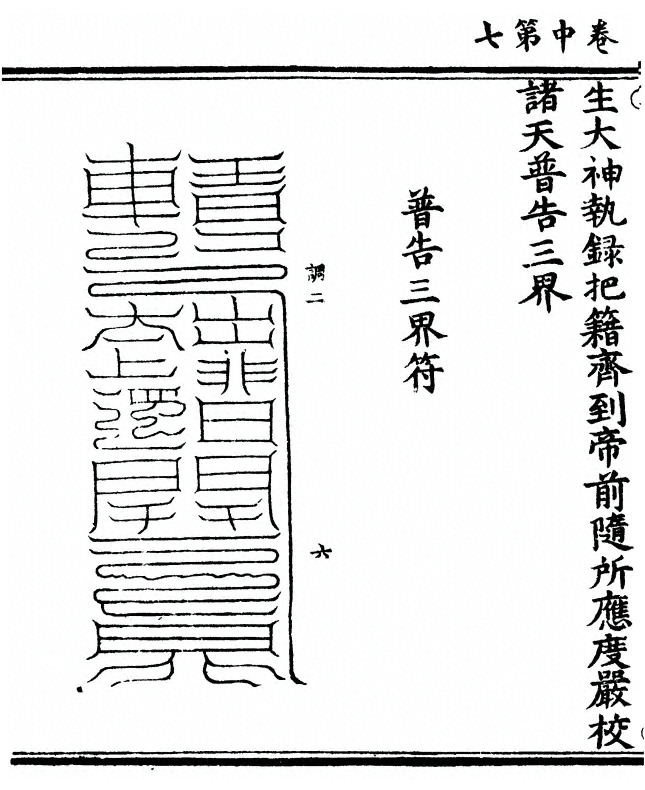 卷中第七
生大神執録把籍齊到帝前隨所應度嚴校
諸天普告三界
普告三界符
調二
六